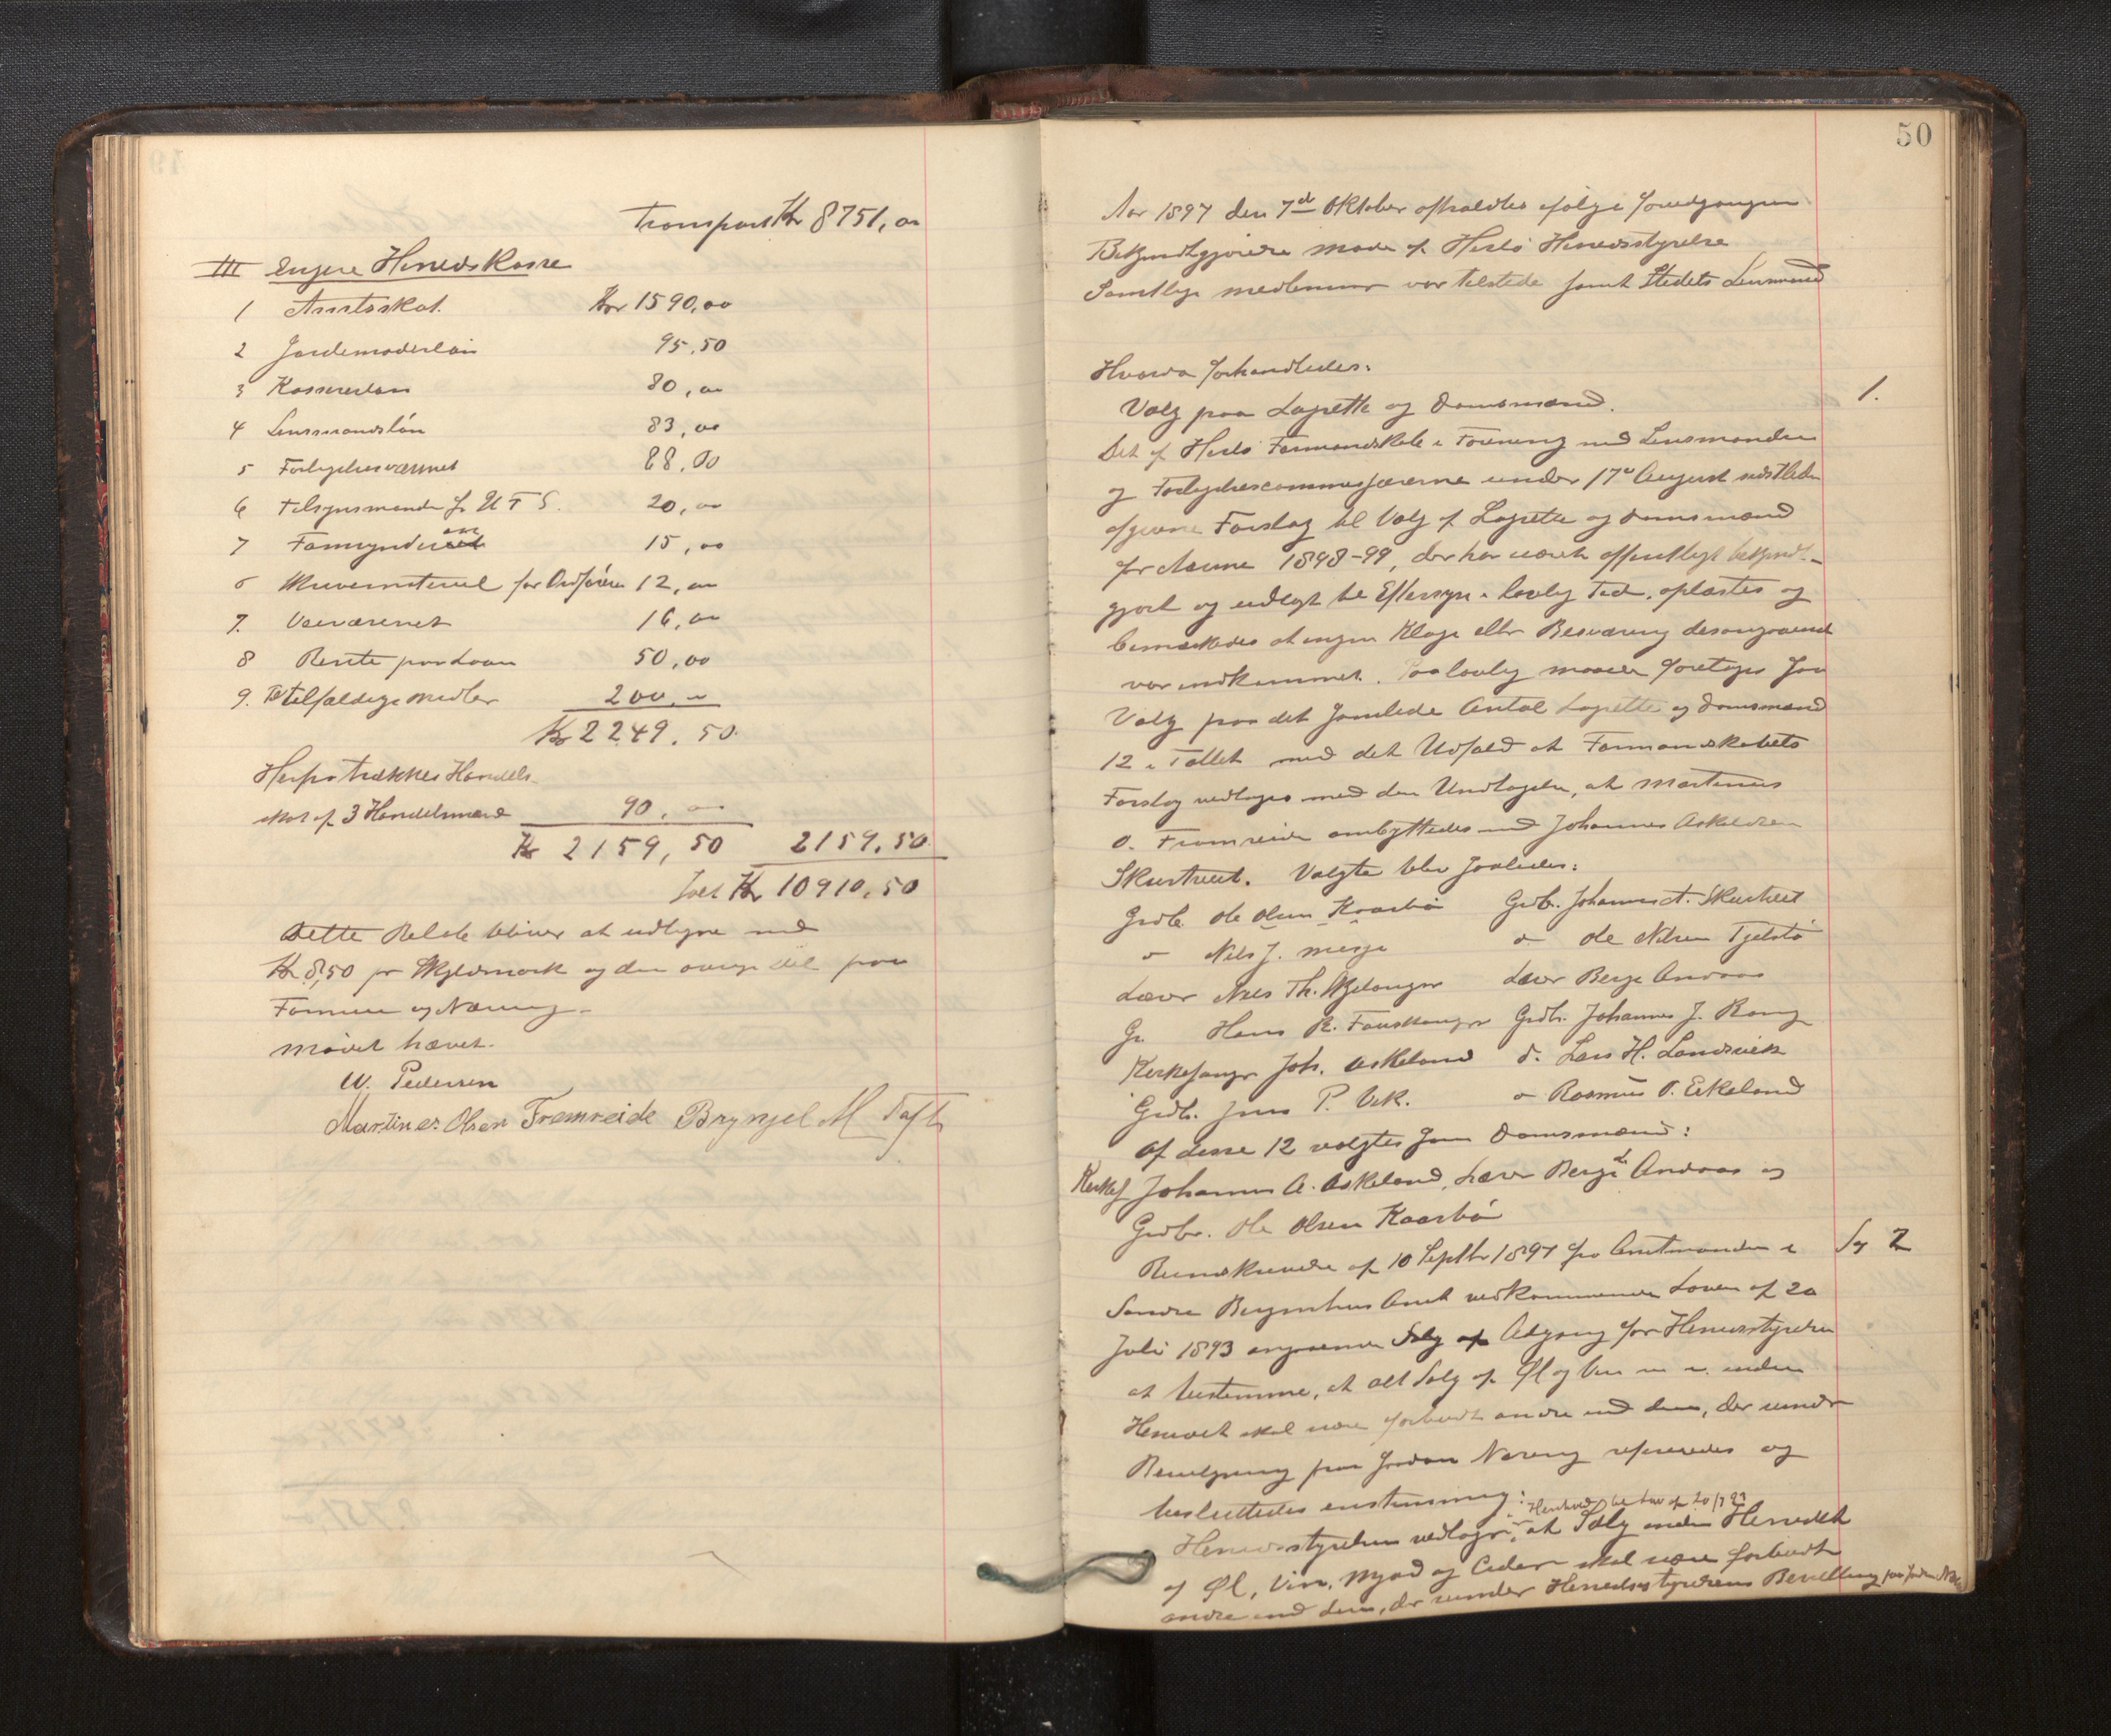 Transport Kr 8751,00
III Engere Herredskasse
1 Amtsskat. Kr 1590,00
2 Jordemoderløn 95,50
3 Kassererløn 80,00
4 Lensmandsløn 83,00
5 Forligelsesvæsenet 88,00
6 Tilsynsmænder f. U T S. 20,00
7 15,00
6 Skrivemateriel for Ordføreren 12,00
7. Veivæsenet 16,00
8 Rente paa Laan 50,00
9. Til tilfældige Midler 200,-
Kr 2249,50
Herfra trækkes Handels-
skat af 3 Handelsmænd 90,00
Kr 2159,50 2159,50
Ialt Kr 10910,50
Dette Beløb bliver at udligne med
Kr 8,50 pr Skyldmark og den øvrige Del paa
Formue og Næring.
Mødet hævet.
W. Pedersen
Martines Olsen Fremreide Brynjel M Toft
50
Aar 1897 den 7de Oktober afholdtes ifølge foregaaende
Bekjendtgjørelse Møde af Herlø Herredsstyrelse
Samtlige Medlemmer var tilstede samt Stedets Lensmand
Hvorda forhandledes:
Valg paa Lagrette og Domsmænd. 1.
Det af Herlø Formandskab i Forening med Lensmanden
og Forligelsescommissærerne under 17de August sidstleden
afgivne Forslag til Valg af Lagrette og Domsmænd
for Aarene 1898-99, der har været offentligt bekjendt-
gjort og udlagt til Eftersyn i lovlig Tid, oplæstes og
bemærkedes at ingen Klage eller Besværing desangaaende
var indkommet. Paa lovlig Maade foretoges saa
Valg paa det samlede Antal Lagrette og Domsmænd
12 i Tallet med det Udfald at Formandskabets
Forslag vedtoges med den Undtagelse, at Martinus
O. Fremreide ombyttedes med Johannes Askeldsen
Skurtveit. Valgte blev saaledes:
Grdb. Ole Olsen Kaarbø Grdb. Johannes A. Skurtveit
" Nils J. Merge " Ole Nilsen Tjelstø
Lærer Nils Th. Skjelanger Lærer Berge Andaas
Gr. Hans R. Fauskanger Grdb. Johannes J. Rong
Kirkesanger Joh. Askeland d. Lars H. Landsvik
Grdb. Jens P. Vik. " Rasmus O. Eikeland
Af disse 12 valgtes som Domsmænd:
Kirkes Johannes A. Askeland, Lærer Berge L Andaas og
Grdbr. Ole Olsen Kaarbø
Rundskrivelse af 10 Septbr 1897 fra Amtmanden i Sg 2
Søndre Bergenhus Amt vedkommende Loven af 20
Juli 1893 angaaende Salg af Adgang for Herredsstyrelsen
at bestemme, at alt Salg af Øl og Vin m. v. inden
Herredet skal være forbudt andre end dem, der under
Bevilgning paa saadan Næring refereredes og
besluttedes enstemmig:
Henhold til Lov af 20/7 93
Herredsstyrelsen vedtager, at Salg inden Herredet
af Øl, Vin, Mjød og Cider skal være forbudt
andre end dem, der under Herredsstyrelsens Bevilling paa saadan